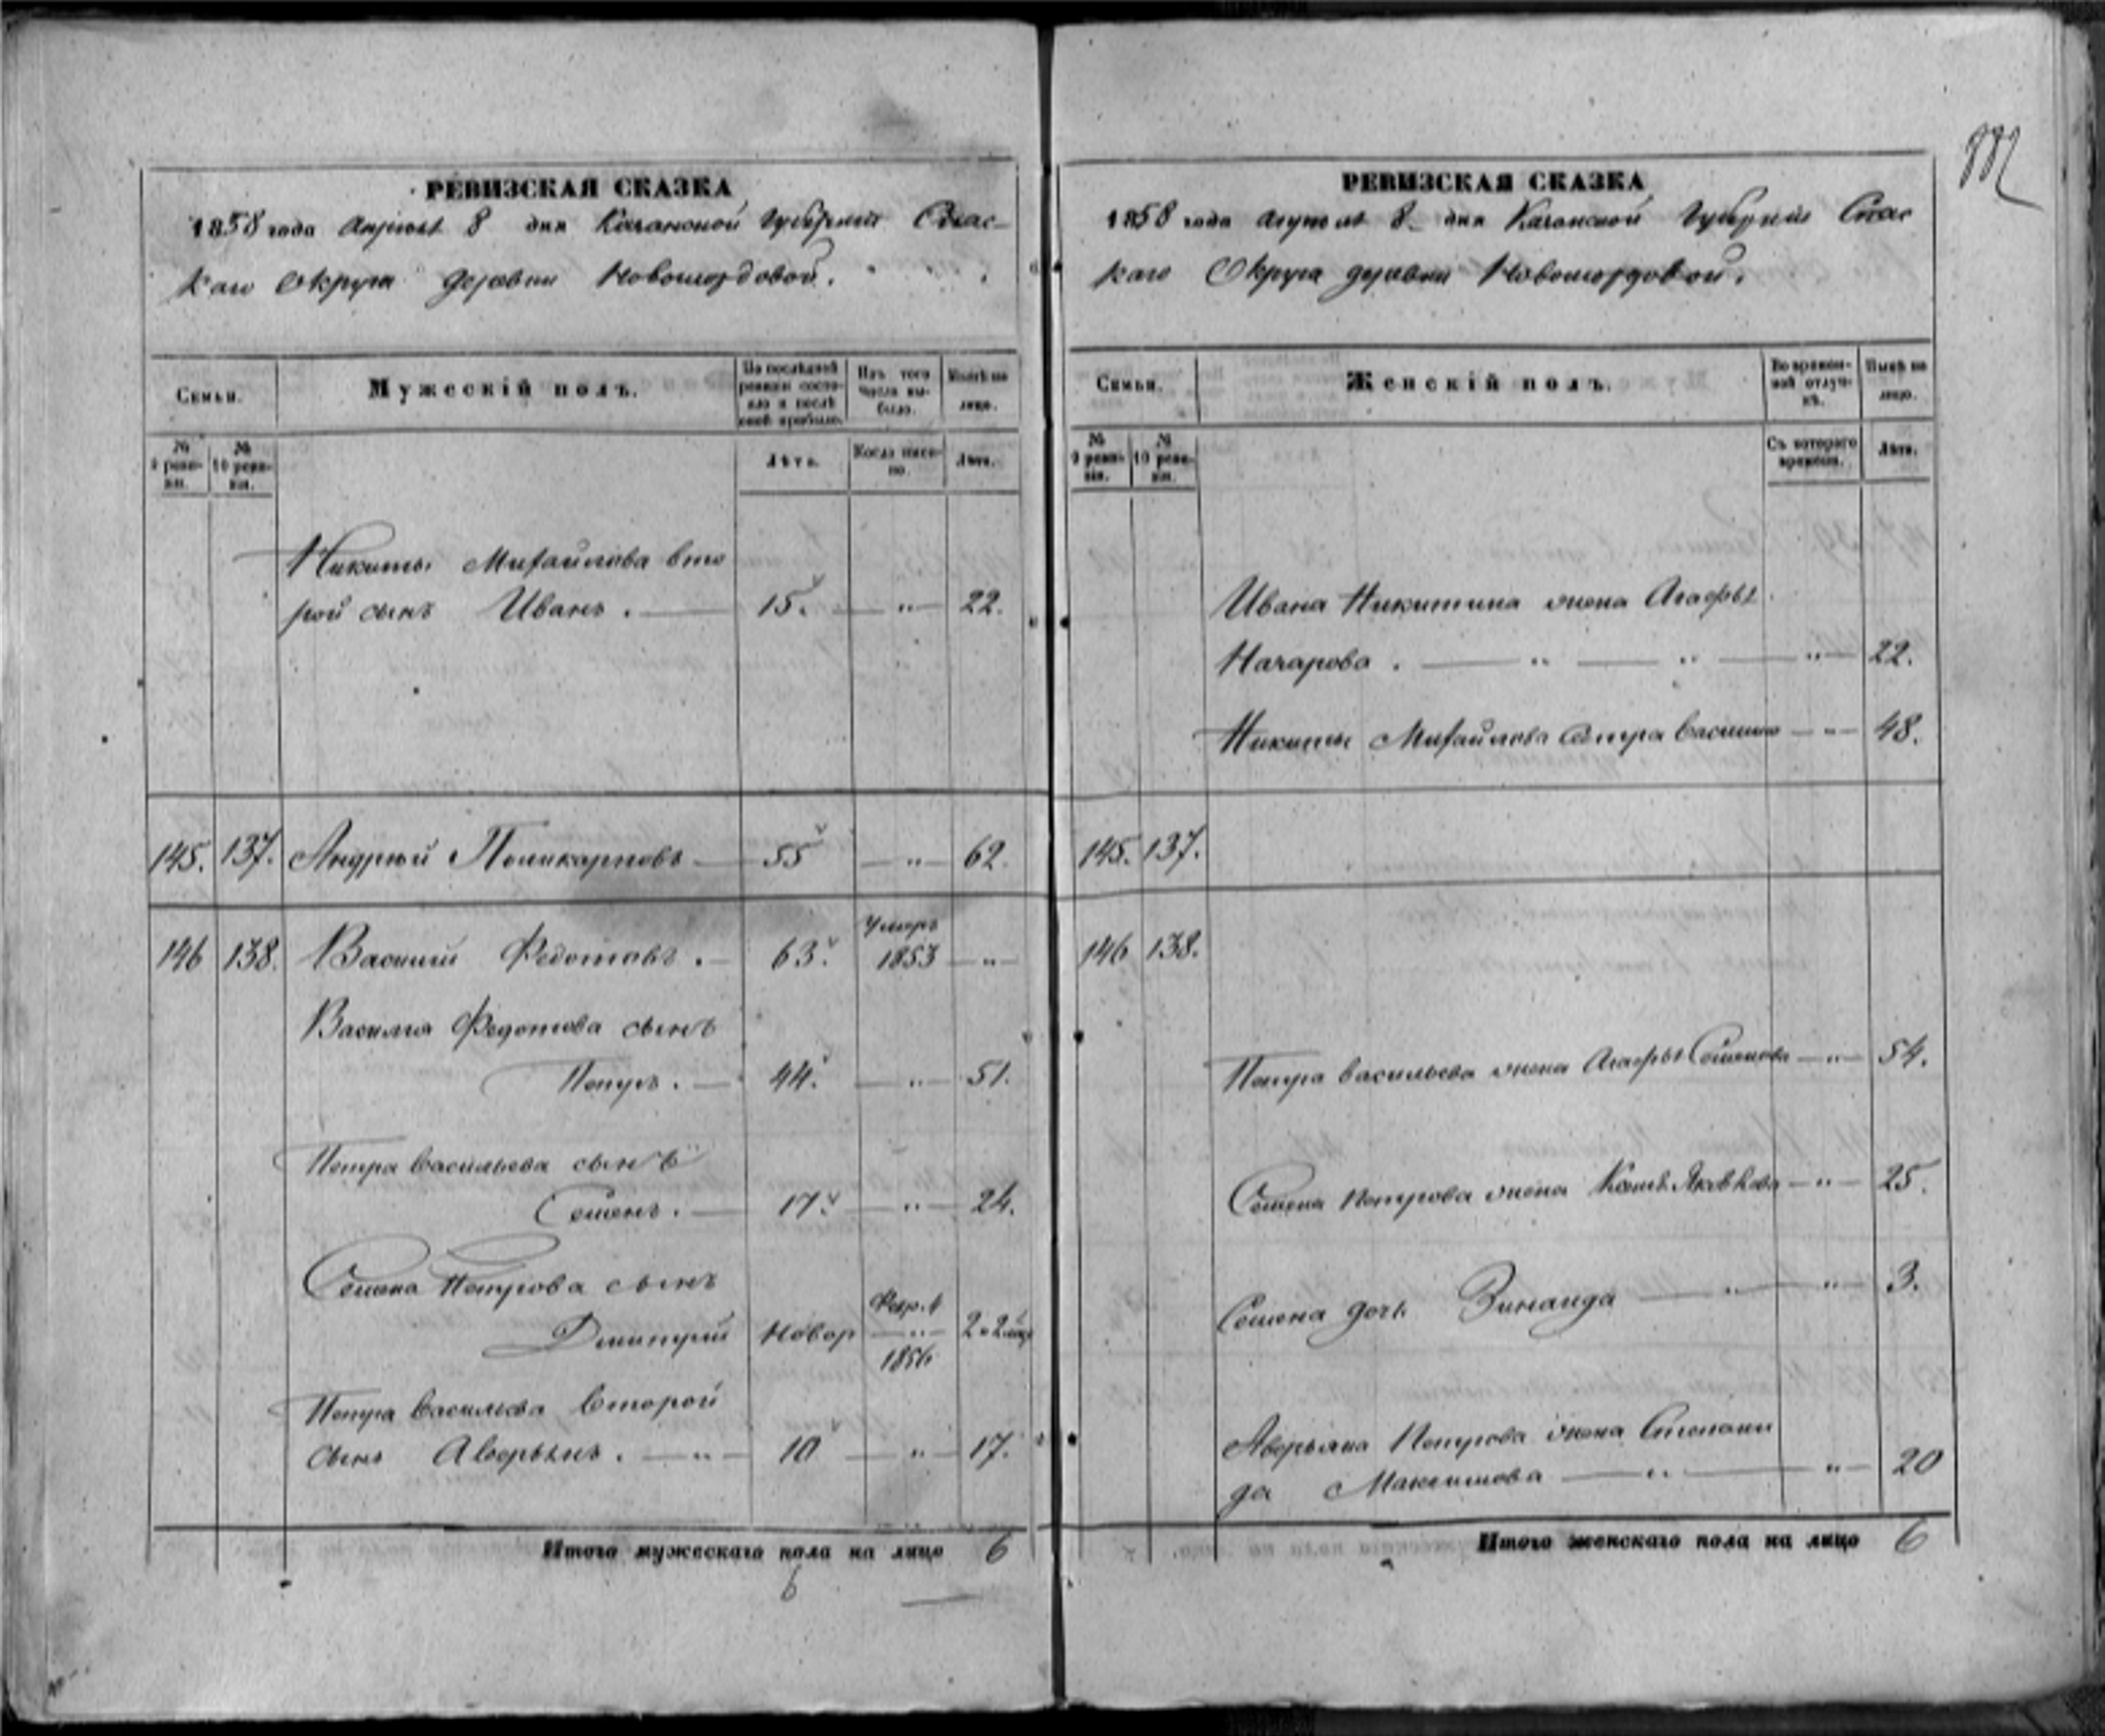 РЕВИЗСКАЯ СКАЗКА
1858 года Апреля 8 дня Казанской Губернии Спас-
каго Округа деревни Новомордовой.
Семьи.
Мужескій полъ.
По послѣдней ревизіи состояло и послѣ оной прибыло.
Изъ того числа выбыло.
Нынѣ на лицо.
№ 9 ревизіи.
№ 10 ревизіи.
Лѣта.
Когда именно.
Лѣта.
Никиты Михайлова вто
рой сынъ Иванъ. — 15. — „ — 22.
145. 137. Андрей Поликарповъ — 55 — „ — 62.
Умеръ
146 138. Василій Федотовъ. — 63. 1853 — „ —
Василья Федотова сынъ
Петръ. — 44. — „ — 51.
Петра Васильева сынъ
Семенъ. — 17. — „ — 24.
Семена Петрова сынъ
Дмитрий Новор — „ — 2
1856
Петра Васильева второй
сынъ Аверьянъ. — „ — 10 — „ — 17.
Итого мужескаго пола на лицо 6
6
РЕВИЗСКАЯ СКАЗКА
1858 года Апреля 8 дня Казанской Губерніи Спас
каго Округа деревни Новомордовой.
Семьи.
Женскій полъ.
Во временной отлучкѣ.
Нынѣ на лицо.
№ 9 ревизіи.
№ 10 ревизіи.
Съ котораго времени.
Лѣта.
Ивана Никитина жена Агафья
Назарова. — „ — „ — „ — 22.
Никиты Михайлова сестра Василиса — „ — 48.
145. 137.
146 138.
Петра Васильева жена Агафья Семенова — „ — 54.
Семена Петрова жена Яковлева — „ — 25.
Семена дочь Зинаида — „ — „ — 3.
Аверьяна Петрова жена Степани
да Максимова — „ — „ — 20
Итого женскаго пола на лицо 6